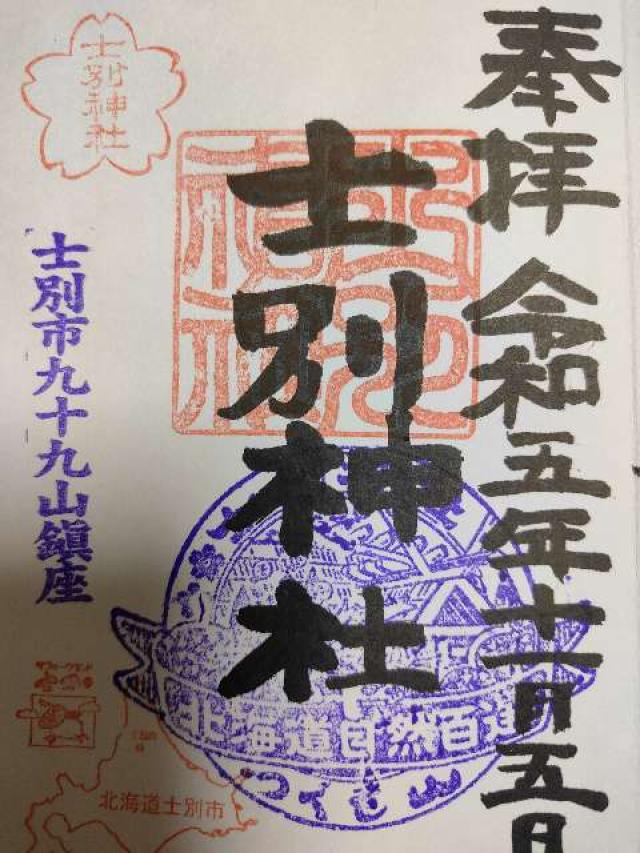 奉拝 令和五年十一月五日
士別神社
士別神社
士別市九十九山鎮座
北海道自然百選
つくも山
北海道士別市